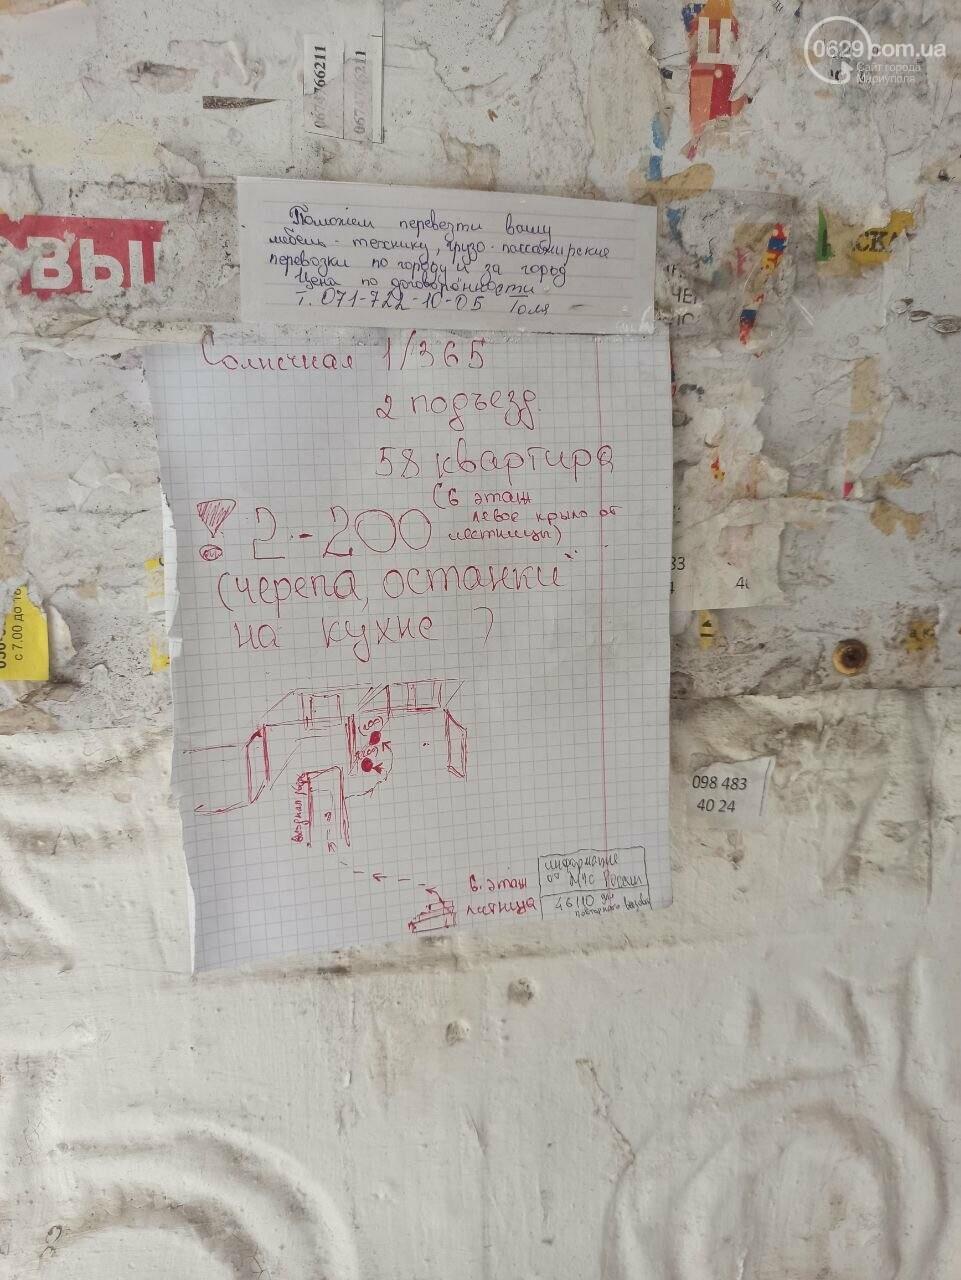 0629.com.ua
Сайт города
Мариуполя
0674766211
ВЫ
Поможем перевезти вашу
мебель - технику, грузо - пассажирские
перевозки по городу и за город
Цена по договорённости.
т. 071-722-10-05 Толя
Солнечная 1/365
2 подъезд.
58 квартира
(6 этаж
левое крыло от
лестницы)
! 2-200
(черепа, останки
на кухне)
входная
6. этаж
лестница
информация
от МЧС России
46110 для
повторного вызова
с 7.00 до
098 483
40 24